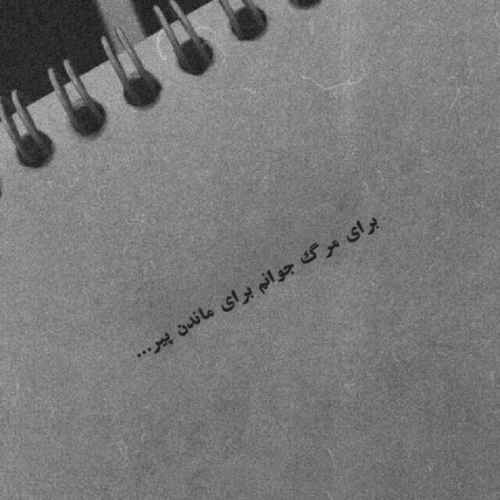 برای مرگ جوانم برای ماندن پیر...